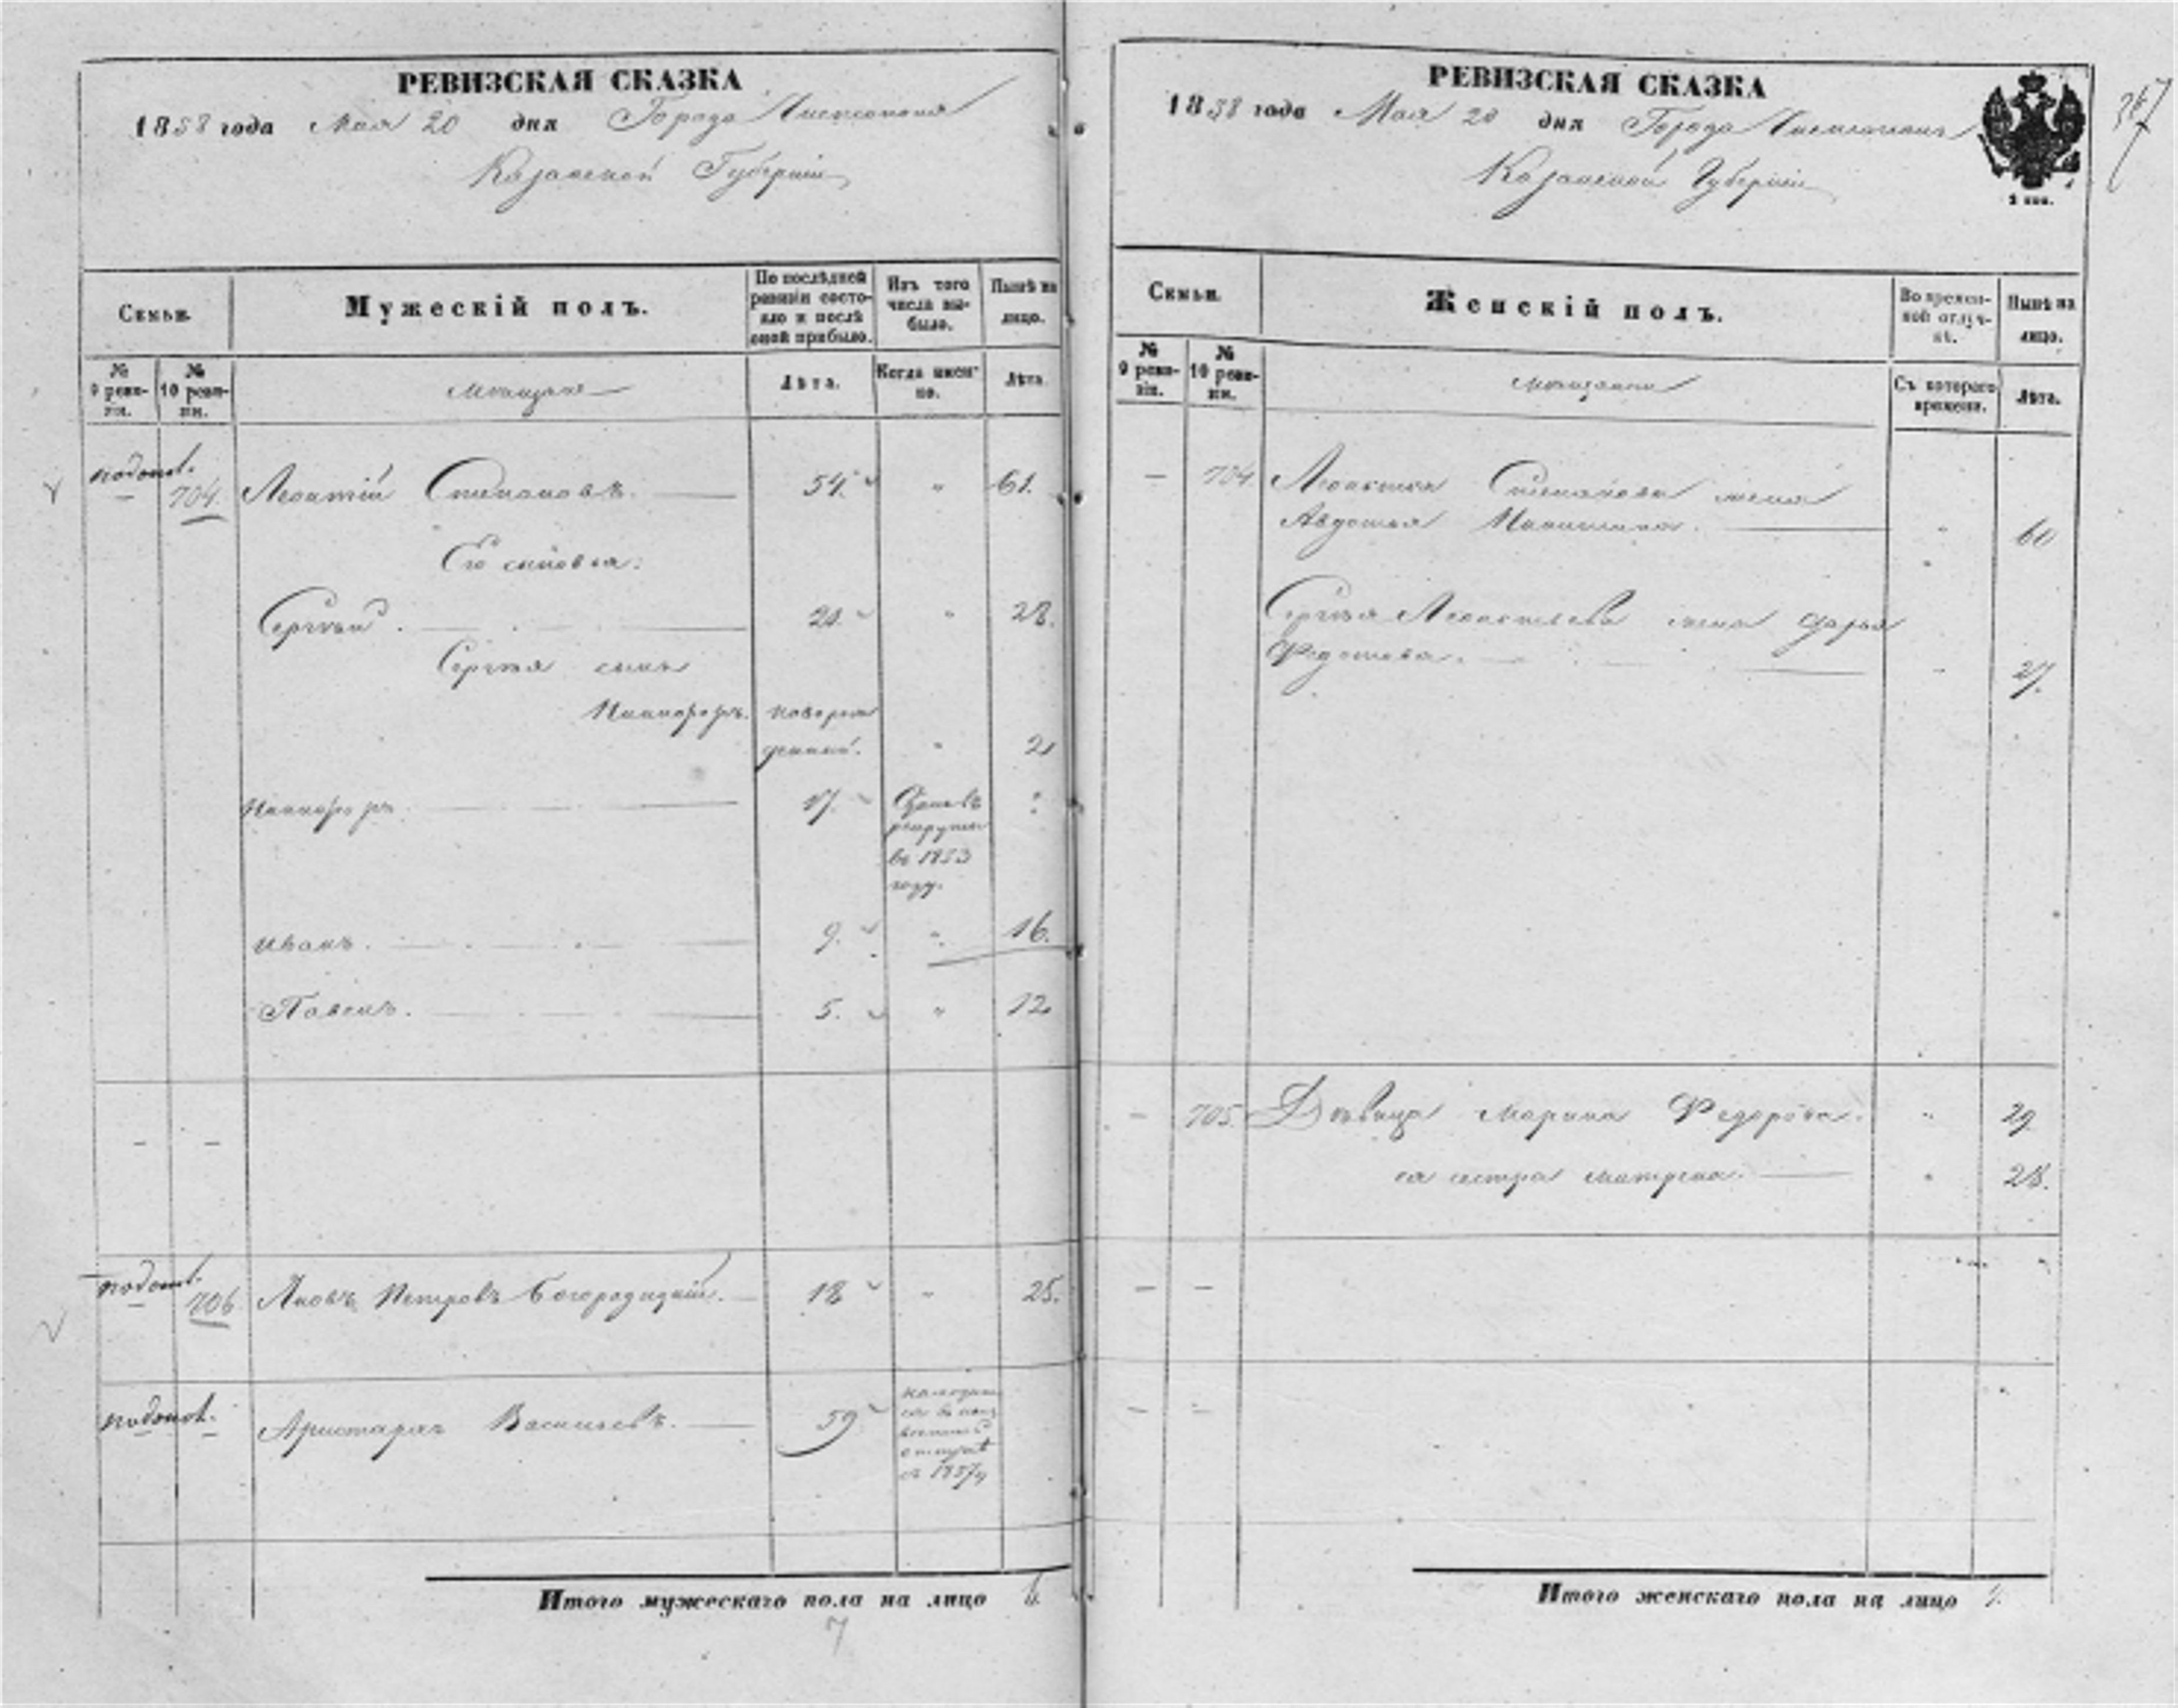 РЕВИЗСКАЯ СКАЗКА
1858 года Мая 20 дня Города Чистополя
Казанской Губерніи
Семьи.
Мужескій полъ.
По послѣдней ревизіи состояло и послѣ оной прибыло.
Изъ того числа выбыло.
Нынѣ на лицо.
№ 9 ревизіи.
№ 10 ревизіи.
Мѣщане
Лѣта.
Когда именно.
Лѣта.
704. Леонтій Степановъ. 54. " 61.
Его сыновья:
Сергѣй. 21. " 28.
Сергѣя сынъ
Никифоръ. новорож
денный. " 2
Никифоръ. 17. Сданъ въ
рекруты
въ 1853
году.
Иванъ. 9. " 16.
Павелъ. 5. " 12.
706 Яковъ Петровъ Богородицкій. 18 " 25.
Аристархъ Васильевъ. 59
въ 1857
Итого мужескаго пола на лицо 6.
7
РЕВИЗСКАЯ СКАЗКА
1858 года Мая 20 дня Города Чистополя
Казанской Губерніи
2 коп.
367
Семьи.
Женскій полъ.
Во временной отлучкѣ.
Нынѣ на лицо.
№ 9 ревизіи.
№ 10 ревизіи.
Мѣщанки
Съ котораго времени.
Лѣта.
— 704 Леонтья Степанова жена
Авдотья Никитина. " 60
Сергѣя Леонтьева жена Дарья
Федотова. " 27.
— 705. Дѣвица Марина Федорова. " 29
ея сестра Матрена. " 28.
Итого женскаго пола на лицо 4.